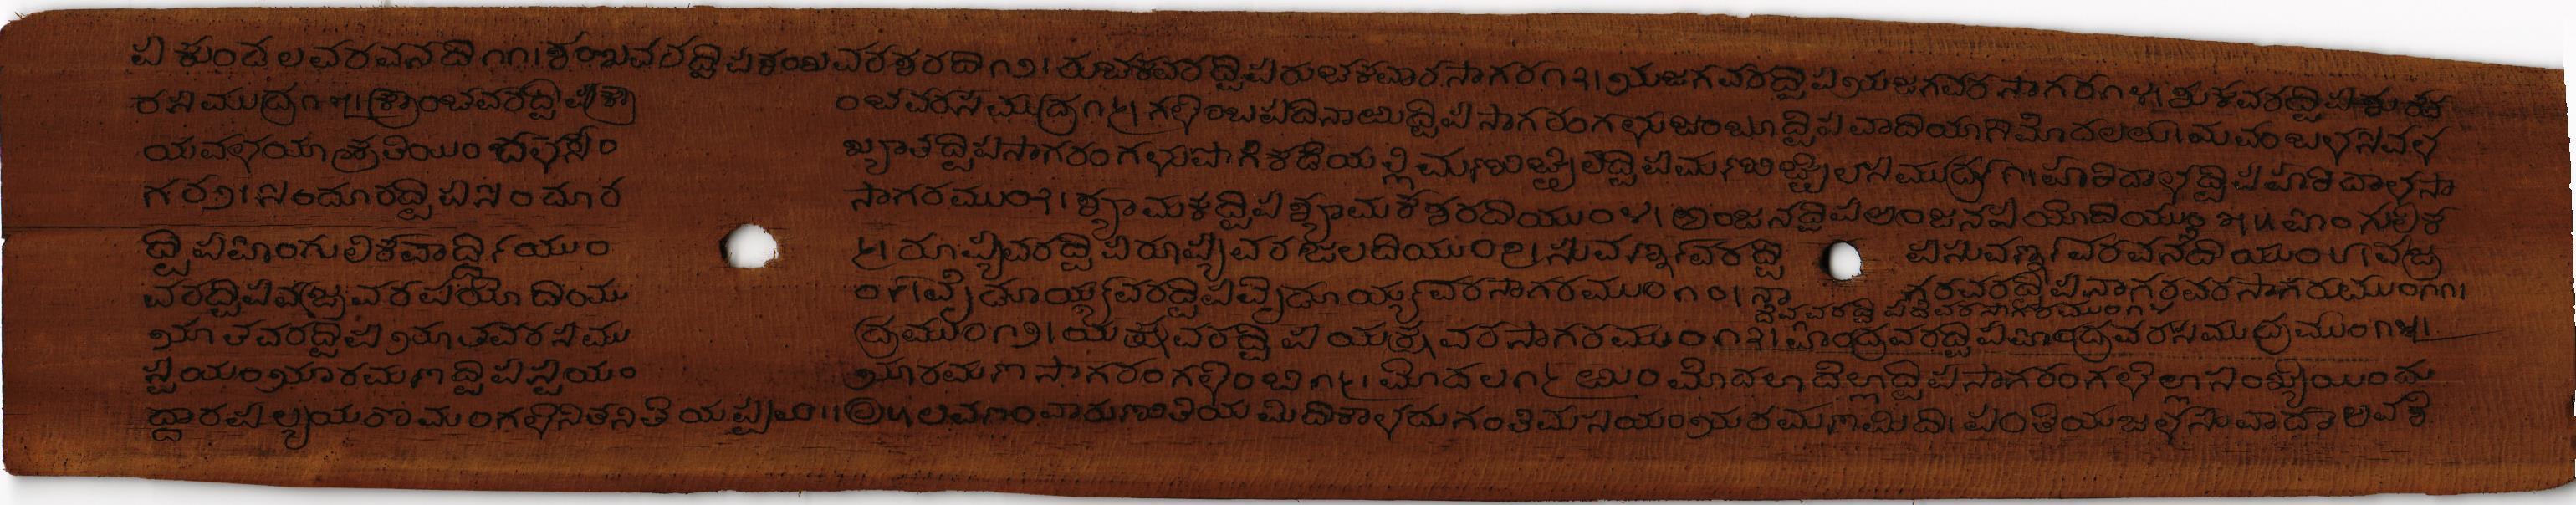 ಪ ಕುಂಡಲವರವನದಿ ೧೧। ಶಂಖವರದ್ವಿಪ ಶಂಖವರಶರದಿ ೧೨। ರುಚಕವರದ್ವಿಪ ರುಚಕವರ ಸಾಗರ ೧೩। ಭುಜಗವರದ್ವಿಪ ಭುಜಗವರ ಸಾಗರ ೧೪। ಕುಶವರದ್ವಿಪ
ರ ಸಮುದ್ರ ೧೫। ಕ್ರೌಂಚವರದ್ವಿಪ ಕ್ರೌಂಚವರಸಮುದ್ರ ೧೬। ಗಳಿಂಬ ಪದಿನಾಱುದ್ವಿಪ ಸಾಗರಂಗಳು ಜಂಬೂದ್ವಿಪವಾದಿಯಾಗಿ ಮೊದಲಲು। ಮವಂ ಬಳಸಿವಳ
ಯವಳಯಾಕ್ರತಿಯಿಂ ಬಳಸಿಂಖ್ಯಾತದ್ವಿಪಸಾಗರಂಗಳು ಪಾಗಿ ಕಡೆಯಲ್ಲಿ ಮಣಶಿಲದ್ವಿಪ ಸಮುದ್ರ ೧। ಹರಿದಾಳದ್ವಿಪ ಹರಿದಾಳಸಾ
ಗರ ೨। ಸಿಂದೂರದ್ವಿಪ ಸಿಂದೂರ ಸಾಗರಮುಂ ೩। ಶ್ಯಾಮಕದ್ವಿಪ ಶ್ಯಾಮಕಶರದಿಯುಂ ೪। ಅಂಜನದ್ವಿಪ ಅಂಜನಪಯೋದಿಯುಂ ೫। ಹಿಂಗುಲಿಕ
ದ್ವಿಪ ಹಿಂಗುಲಿಕವಾರ್ದ್ದಿಯುಂ ೬। ರೂಪ್ಯವರದ್ವಿಪ ರೂಪ್ಯವರ ಜಲದಿಯುಂ ೭। ಸುವರ್ಣ್ನವರದ್ವಿಪ ಸುವರ್ಣ್ನವರವನದಿಯುಂ ೮। ವಜ್ರ
ವರದ್ವಿಪ ವಜ್ರವರಪಯೋದಿಯುಂ ೯। ವೈಡೂರ್ಯ್ಯವರದ್ವಿಪ ವೈಡೂರ್ಯ್ಯವರಸಾಗರಮುಂ ೧೦। ನಾಗವರದ್ವಿಪ ನಾಗವರಸಾಗರಮುಂ ೧೧।
ದೇವವರದ್ವಿಪ ದೇವವರಸಾಗರಮುಂ ೧೪
ಭೂತವರದ್ವಿಪ ಭೂತವರಸಮುದ್ರಮುಂ ೧೨। ಯಕ್ಷವರದ್ವಿಪ ಯಕ್ಷವರಸಾಗರಮುಂ ೧೩। ಹಿಂದ್ರವರದ್ವಿಪ ಹಿಂದ್ರವರಸಮುದ್ರಮುಂ ೧೫।
ಸ್ವಯಂಭೂರಮಣದ್ವಿಪ ಸ್ವಯಂಭೂರಮಣ ಸಾಗರಂಗಳಿಂಬಿ ೧೬। ಮೊದಲ ೧೬ ಱುಂ ಮೊದಲಾದೆಲ್ಲಾದ್ವಿಪಸಾಗರಂಗಳೆಲ್ಲಾ ಸಂಖ್ಯೆಯಿಂದು
ದ್ದಾರಪಲ್ಯಯರೊಮಂಗಳೆನಿತನಿತೆಯಪ್ಪುವು॥ ಲವಣಂ ವಾರುಣಿತಿಯಮಿದಿ ಕಾಳದುಗಂತಿಮಸಯಂಭುರಮಣಮಿದಿ। ಪಂತಿಯಜಳಸುವಾದಾ ಅವಶೆ